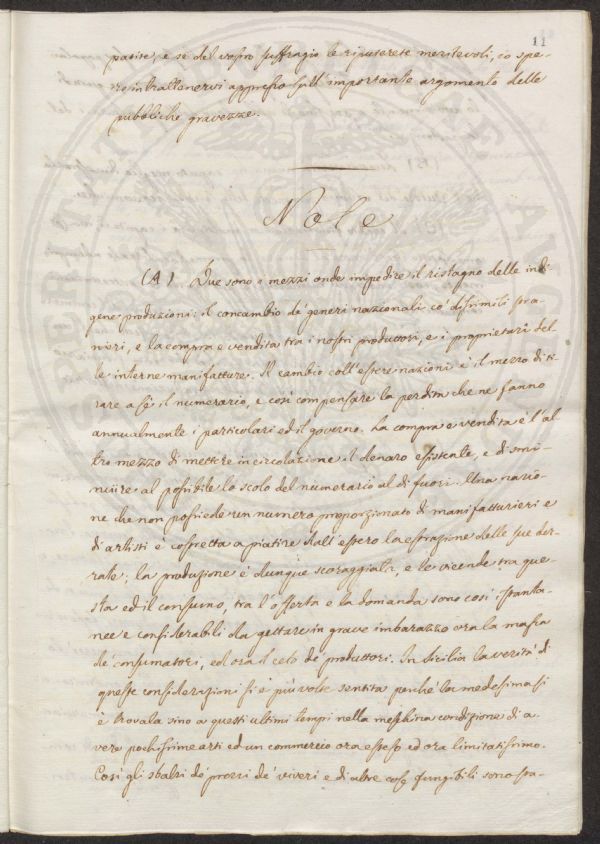 11
patite, e se del vostro suffragio le riputerete meritevoli, io spe-
ro intrattenervi appresso sull'importante argomento delle
pubbliche gravezze.
Note
(A) Due sono i mezzi onde impedire il ristagno delle indi
gene produzioni: il concambio de' generi nazionali co' dissimili stra-
nieri, e la compra e vendita tra i nostri produttori, e i proprietarî del
le interne manifatture. Il cambio coll'estere nazioni è il mezzo di ti
rare a sè il numerario, e così compensare la perdita che ne fanno
annualmente i particolari ed il governo. La compra e vendita è l'al
tro mezzo di mettere in circolazione il denaro esistente, e di smi-
nuire al possibile lo scolo del numerario al di fuori. Una nazio-
ne che non possiede un numero proporzionato di manifatturieri e
di artisti è costretta a piatire dall'estero la estrazione delle sue der-
rate; la produzione è dunque scoraggiata, e le vicende tra que-
sta ed il consumo, tra l'offerta e la domanda sono così istanta-
nee e considerabili da gettare in grave imbarazzo ora la massa
de' consumatori, ed ora il ceto de' produttori. In Sicilia la verità di
queste considerazioni si è più volte sentita perchè la medesima si
è trovata sino a questi ultimi tempi nella meschina condizione di a
vere pochissime arti ed un commercio ora esteso ed ora limitatissimo.
Così gli sbalzi de' prezzi de' viveri e di altre cose fungibili sono sta-